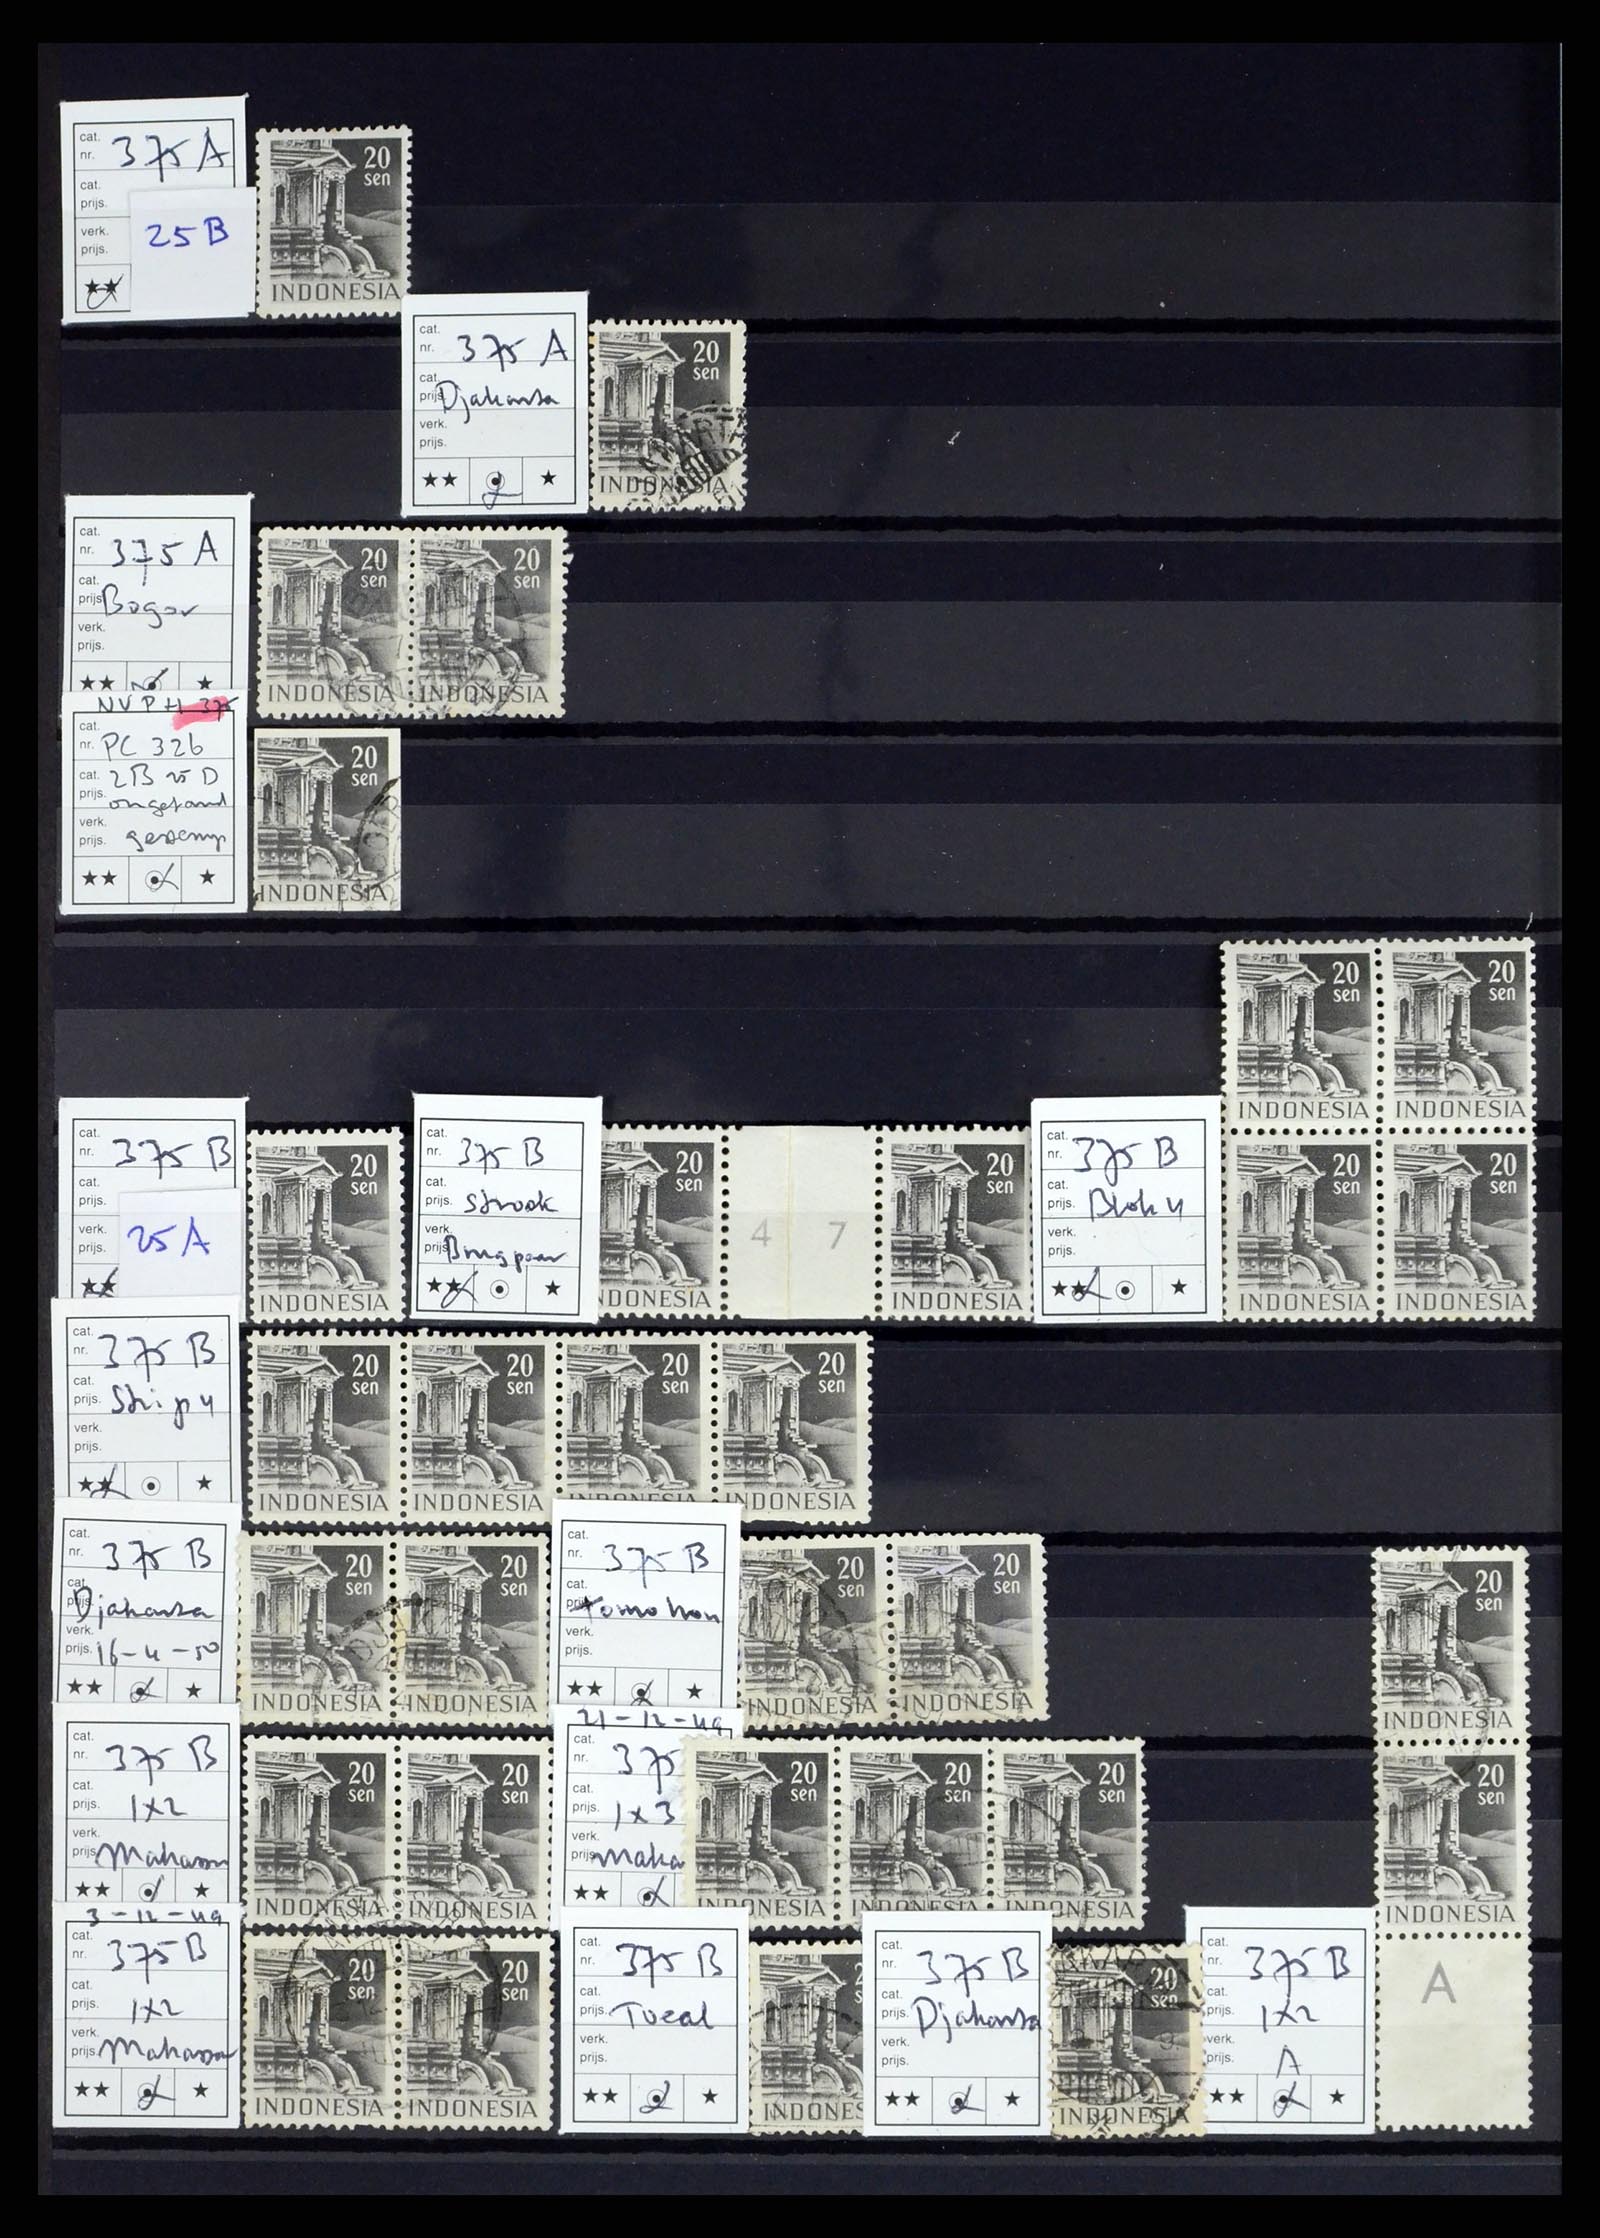 cat.
nr. 375 A
cat.
prijs.
verk.
prijs.
25 B
★★
20
sen
INDONESIA
cat.
nr. 375 A
cat.
prijs. Djakarta
verk.
prijs.
★★ ★
20
sen
INDONESIA
cat.
nr. 375 A
cat.
prijs Bogor
verk.
prijs.
★★ ★
20
sen
20
sen
INDONESIA INDONESIA
NVPH 375
cat.
nr. PC 326
cat. 2B 25 D
prijs. ongetand
verk.
prijs. gestemp
★★ ★
20
sen
INDONESIA
20
sen
20
sen
INDONESIA INDONESIA
20
sen
20
sen
INDONESIA INDONESIA
cat.
nr. 375 B
cat.
prijs.
verk.
prijs.
25 A
★★
20
sen
INDONESIA
cat.
nr. 375 B
cat.
prijs. Strook
verk.
prijs Brugpaar
★★ ★
20
sen
NESIA
4 7
20
sen
INDONESIA
cat.
nr. 375 B
cat.
prijs. Blok 4
verk.
prijs.
★★ ★
cat.
nr. 375 B
cat.
prijs. Strip 4
verk.
prijs.
★★ ★
20
sen
20
sen
20
sen
20
sen
INDONESIA INDONESIA INDONESIA INDONESIA
cat.
nr. 375 B
cat.
prijs. Djakarta
verk.
prijs. 16-4-50
★★ ★
20
sen
20
sen
INDONESIA INDONESIA
cat.
nr. 375 B
cat.
prijs Tomohon
verk.
prijs.
★★ ★
20
sen
20
sen
INDONESIA INDONESIA
20
sen
INDONESIA
20
sen
INDONESIA
A
cat.
nr. 375 B
cat.
prijs. 1x2
verk.
prijs. Makassar
★★ ★
20
sen
20
sen
INDONESIA INDONESIA
21-12-49
cat.
nr. 375
cat.
prijs. 1x3
verk.
prijs. Maka
★★
20
sen
20
sen
20
sen
INDONESIA INDONESIA INDONESIA
3-12-49
cat.
nr. 375 B
cat.
prijs. 1x2
verk.
prijs. Makassar
★★ ★
20
sen
20
sen
INDONESIA INDONESIA
cat.
nr. 375 B
cat.
prijs. Toeal
verk.
prijs.
★★ ★
INDONES
cat.
nr. 375 B
cat.
prijs. Djakarta
verk.
prijs.
★★ ★
20
sen
INDONESIA
cat.
nr. 375 B
cat.
prijs. 1x2
verk.
prijs. A
★★ ★